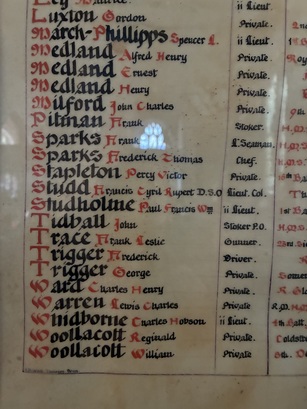 Luxton Gordon Private.
March-Phillipps Spencer L. ii Lieut.
Medland Alfred Henry Private.
Medland Ernest Private.
Medland Henry Private.
Milford John Charles Private.
Pitman Frank Stoker.
Sparks Frank L. Seaman.
Sparks Frederick Thomas Chef.
Stapleton Percy Victor Private.
Studd Francis Cyril Rupert D.S.O Lieut. Col.
Studholme Paul Francis Wm ii Lieut.
Tidball John Stoker P.O.
Trace Frank Leslie Gunner.
Trigger Frederick Driver.
Trigger George Private.
Ward Charles Henry Private.
Warren Lewis Charles Private.
Windborne Charles Hobson ii Lieut.
Woollacott Reginald Private.
Woollacott William Private.